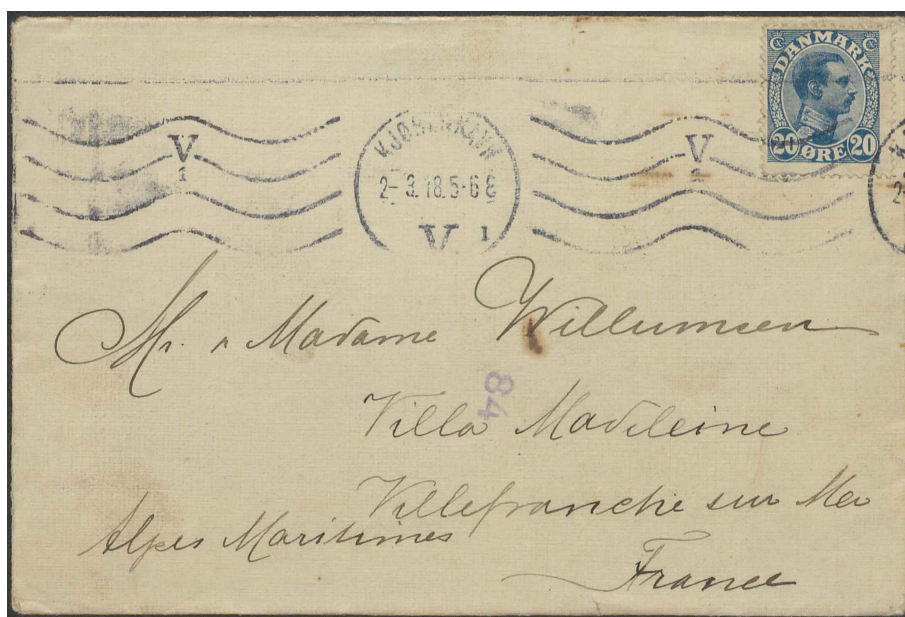 DANMARK
20 ØRE 20
V
1
KJØBENHAVN
2-3.18.5-6 E
V 1
V
1
Mr. & Madame Willumsen
84
Villa Madeleine
Villefranche sur Mer
Alpes Maritimes
France